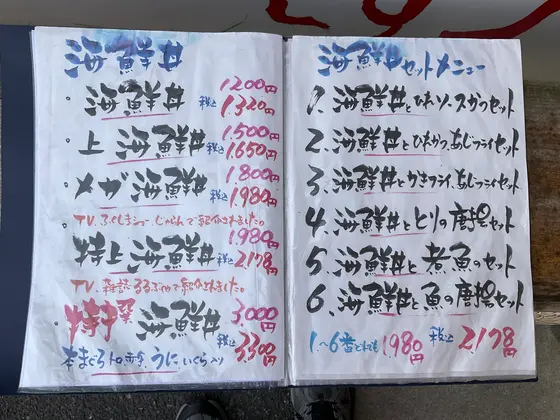 海鮮丼
・海鮮丼 1200円 税込1,320円
・上海鮮丼 1,500円 税込1,650円
・メガ海鮮丼 1,800円 税込1,980円
TV、ふくしまつー、じゃらんで紹介されました。
・特上海鮮丼 1,980円 税込2,178円
TV、雑誌るるぶで紹介されました。
・特選海鮮丼 3000円 税込3,300円
本まぐろトロ、赤身、うに、いくら入り
海鮮丼セットメニュー
1、海鮮丼とひれソースかつセット
2、海鮮丼とひれかつ、あじフライセット
3、海鮮丼とかきフライ、あじフライセット
4、海鮮丼ととりの唐揚セット
5、海鮮丼と煮魚のセット
6、海鮮丼と魚の唐揚セット
1、〜6番どれでも 1,980円 税込2,178円